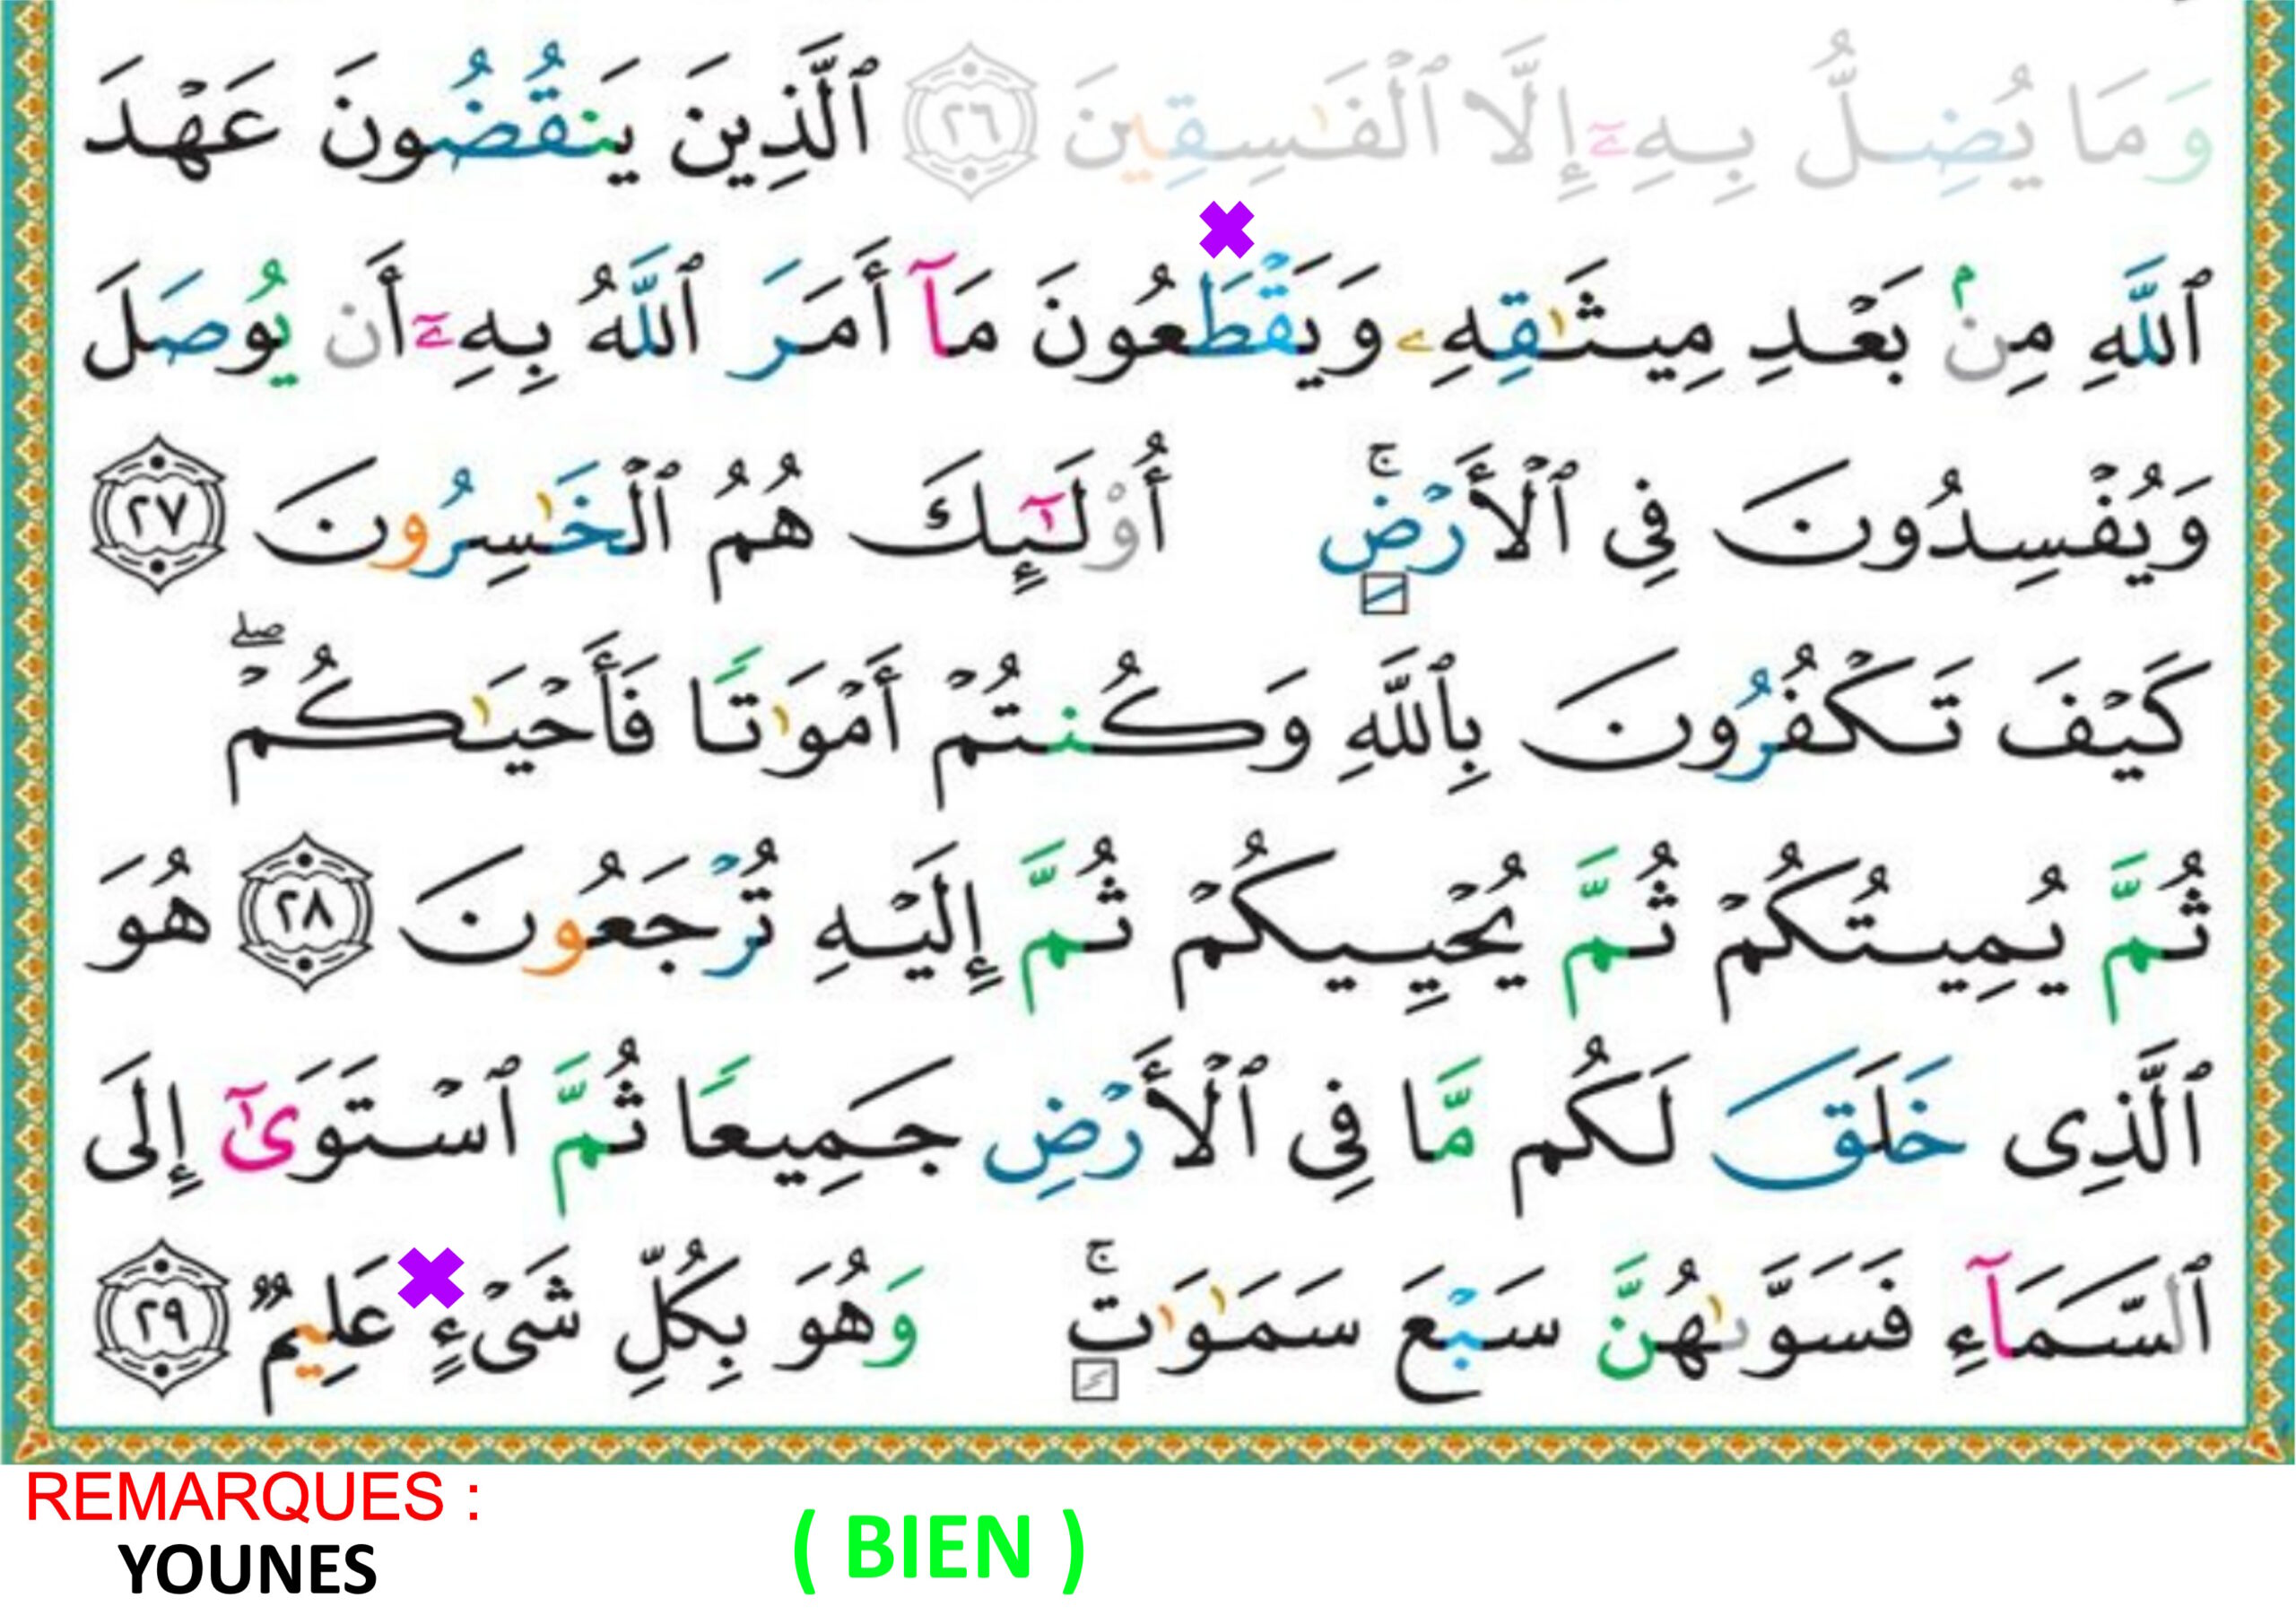 وَمَا يُضِلُّ بِهِۦٓ إِلَّا ٱلْفَـٰسِقِينَ ٢٦ ٱلَّذِينَ يَنقُضُونَ عَهْدَ
ٱللَّهِ مِنۢ بَعْدِ مِيثَـٰقِهِۦ وَيَقْطَعُونَ مَآ أَمَرَ ٱللَّهُ بِهِۦٓ أَن يُوصَلَ
وَيُفْسِدُونَ فِى ٱلْأَرْضِۚ أُو۟لَـٰٓئِكَ هُمُ ٱلْخَـٰسِرُونَ ٢٧
كَيْفَ تَكْفُرُونَ بِٱللَّهِ وَكُنتُمْ أَمْوَٰتًا فَأَحْيَـٰكُمْۖ
ثُمَّ يُمِيتُكُمْ ثُمَّ يُحْيِيكُمْ ثُمَّ إِلَيْهِ تُرْجَعُونَ ٢٨ هُوَ
ٱلَّذِى خَلَقَ لَكُم مَّا فِى ٱلْأَرْضِ جَمِيعًا ثُمَّ ٱسْتَوَىٰٓ إِلَى
ٱلسَّمَآءِ فَسَوَّىٰهُنَّ سَبْعَ سَمَـٰوَٰتٍۚ وَهُوَ بِكُلِّ شَىْءٍ عَلِيمٌ ٢٩
REMARQUES :
YOUNES ( BIEN )